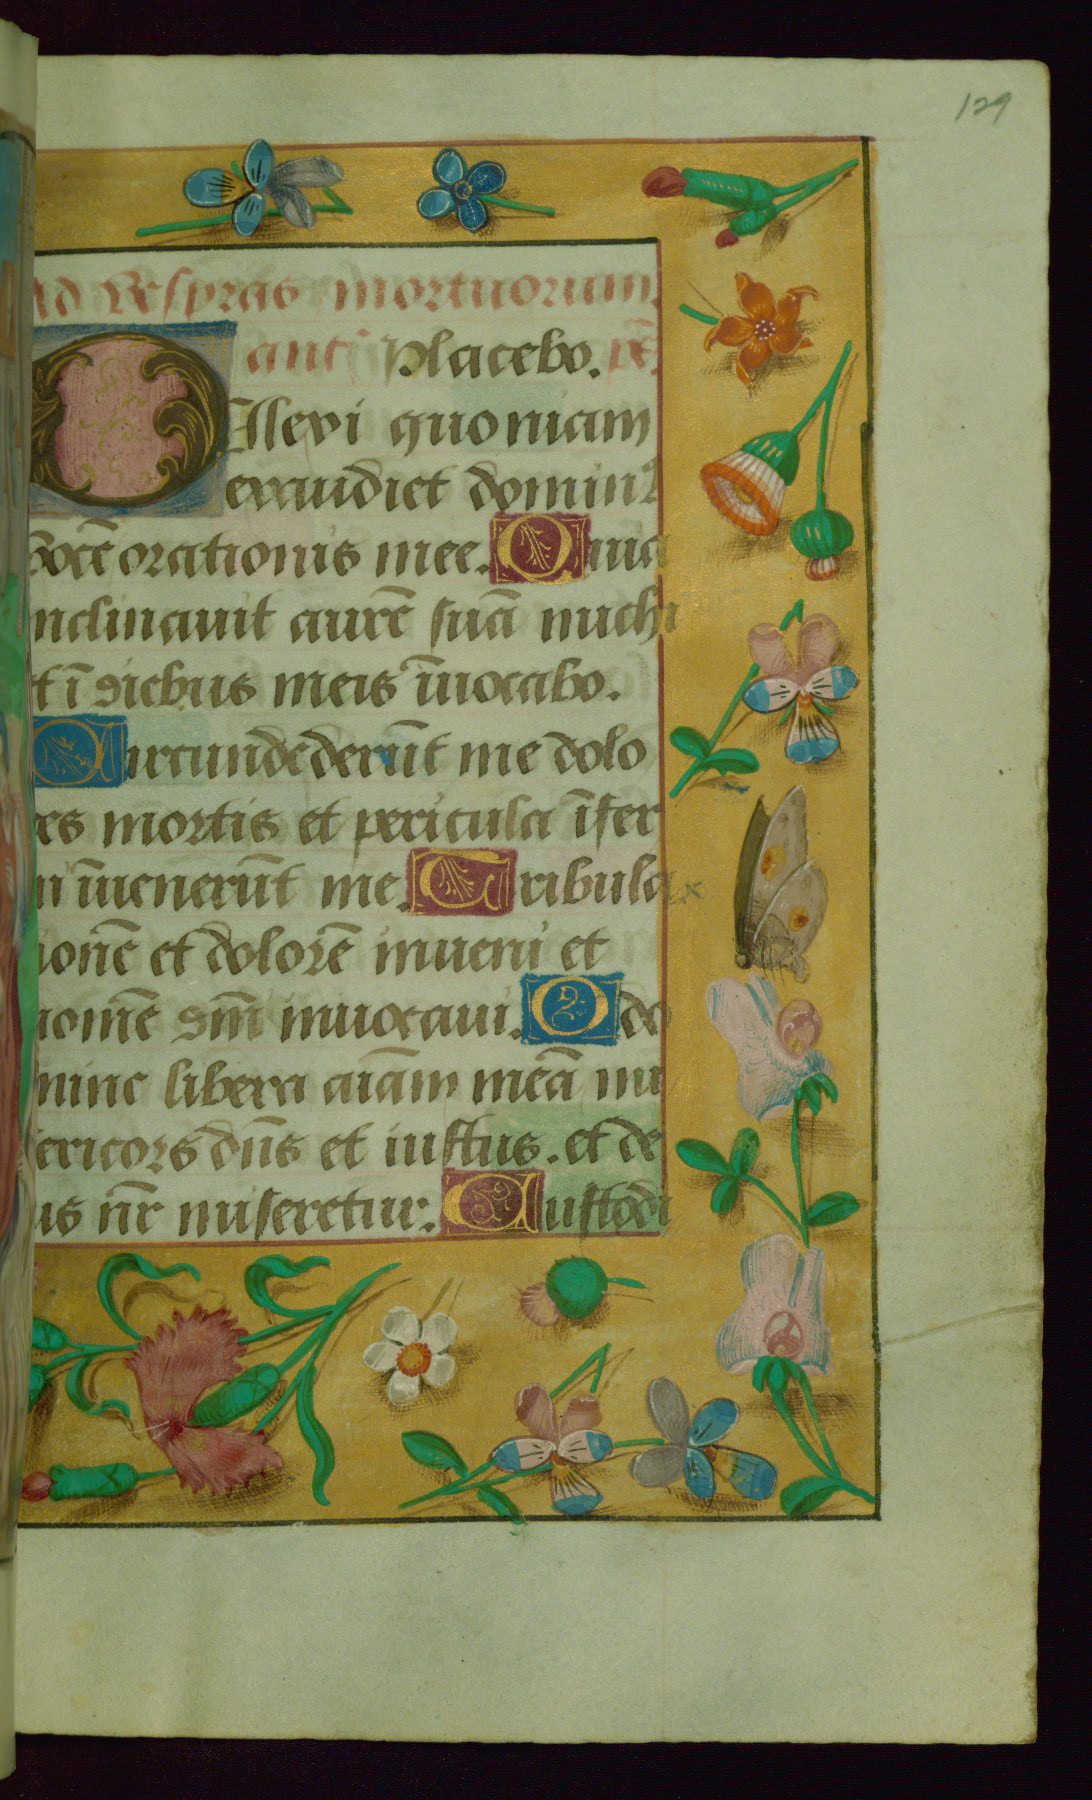 129
Ad vespras mortuorum
ant Placebo. ps̄.
Dilexi quoniam
exaudiet dominꝰ
vocē orationis mee. Quia
inclinavit aurē suā michi
et ī diebus meis īvocabo.
Circundederūt me dolo
res mortis et pericula īfer
ni īvenerūt me. Tribula
tionē et dolorē inveni et
nomē dn̄i invocavi. O do
mine libera aīam meā mi
sericors dn̄s et iustus. et de
us nr̄ miseretur. Custodi